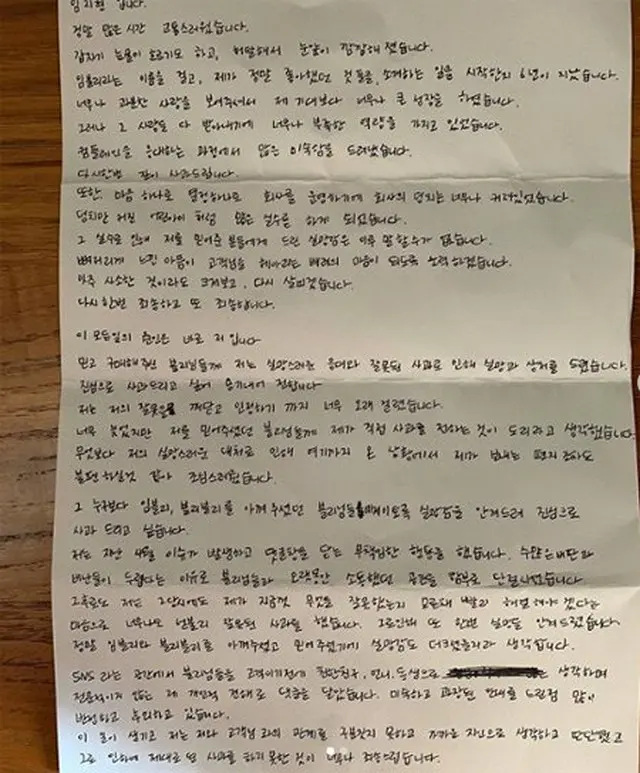 임지현 입니다.
정말 많은 시간 고통스러웠습니다.
갑자기 눈물이 흐르기도 하고, 허탈해서 눈앞이 깜깜해 졌습니다.
임블리라는 이름을 걸고, 제가 정말 좋아했던 것들을, 소개하는 일을 시작한지 6년이 지났습니다.
너무나 과분한 사랑을 보여주셔서 제 기대보다 너무나 큰 성장을 하였습니다.
그러나 그 사랑을 다 받아내기에 너무나 부족한 역량을 가지고 있었습니다.
컴플레인을 응대하는 과정에서 많은 미숙함을 드러냈습니다.
다시한번 깊이 사과드립니다.
또한, 마음 하나로 열정하나로 회사를 운영하기에 회사의 덩치는 너무나 커져있었습니다.
덩치만 커진 어린아이 처럼 많은 실수를 하게 되었습니다.
그 실수로 인해 저를 믿어준 분들에게 드린 실망감은 이루 말할수가 없습니다.
뼈저리게 느낀 마음이 고객님을 헤아리는 배려의 마음이 되도록 노력하겠습니다.
아주 사소한 것이라도 크게보고, 다시 살피겠습니다.
다시한번 죄송하고 또 죄송합니다.
이 모든일의 원인은 바로 저 입니다
믿고 구매해주신 블리님들께 저는 실망스러운 응대와 잘못된 사과로 인해 실망과 상처를 드렸습니다.
진심으로 사과드리고 싶어 용기내어 전합니다
저는 저의 잘못을 깨닫고 인정하기 까지 너무 오래 걸렸습니다.
너무 늦었지만 저를 믿어주셨던 블리님들께 제가 직접 사과를 전하는 것이 도리라고 생각했습니다
무엇보다 저의 실망스러운 대처로 인해 여기까지 온 상황에서 제가 보내는 편지 조차도
불편 하실것 같아 조심스러웠습니다.
그 누구보다 임블리, 블리블리를 아껴 주셨던 블리님들께 이토록 실망감을 안겨드려 진심으로
사과 드리고 싶습니다.
저는 지난 4월 이슈가 발생하고 댓글창을 닫는 무책임한 행동을 했습니다. 수많은 비난과
비난들이 두렵다는 이유로 블리님들과 오랫동안 소통했던 공간을 일방로 단절시켰습니다.
그후로도 저는 그당시에도 제가 지금껏 무엇을 잘못했는지 모른채 빨리 해결해야 겠다는
마음으로 너무나도 섣불리 잘못된 사과를 했습니다. 그로인해 또 한번 실망을 안겨드렸습니다.
정말 임블리와 블리블리를 아껴주셨고 믿어주셨기에 실망감도 더크셨을거라 생각합니다.
SNS 라는 공간에서 블리님들을 고객이기전에 친한친구, 언니, 동생으로 생각하며
전문적이지 않은 제 개인적 견해로 댓글을 달았습니다. 미숙하고 과장된 안내를 드린점 많이
반성하고 후회하고 있습니다.
이 일이 생기고 저는 저와 고객님 과의 관계를 구분짓지 못하고 가까운 지인으로 생각하고 판단했고
그로 인하여 제대로 된 사과를 하지 못한 것이 너무나 죄송스럽습니다.